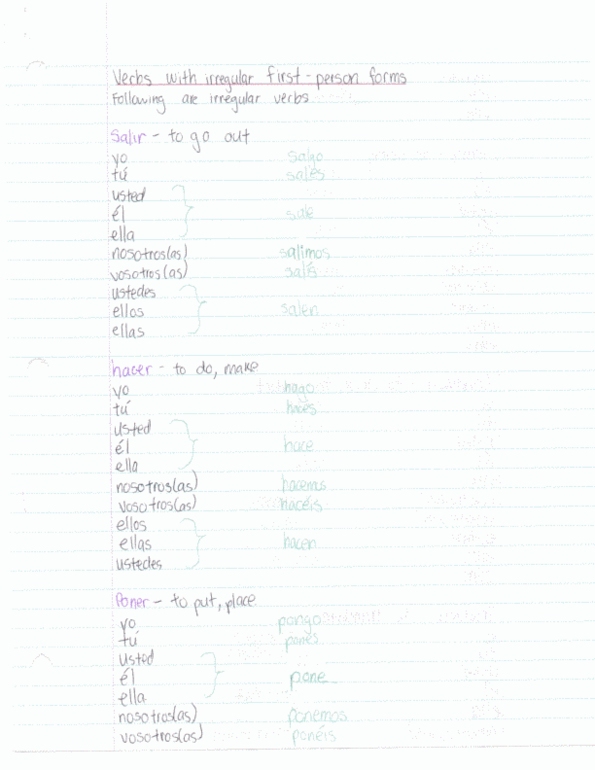 Verbs with irregular first-person forms
Following are irregular verbs
Salir - to go out
yo salgo
tú sales
usted
él sale
ella
nosotros(as) salimos
vosotros(as) salís
ustedes
ellos salen
ellas
hacer - to do, make
yo hago
tú haces
usted
él hace
ella
nosotros(as) hacemos
vosotros(as) hacéis
ellos
ellas hacen
ustedes
Poner - to put, place
yo pongo
tú pones
usted
él pone
ella
nosotros(as) ponemos
vosotros(as) ponéis